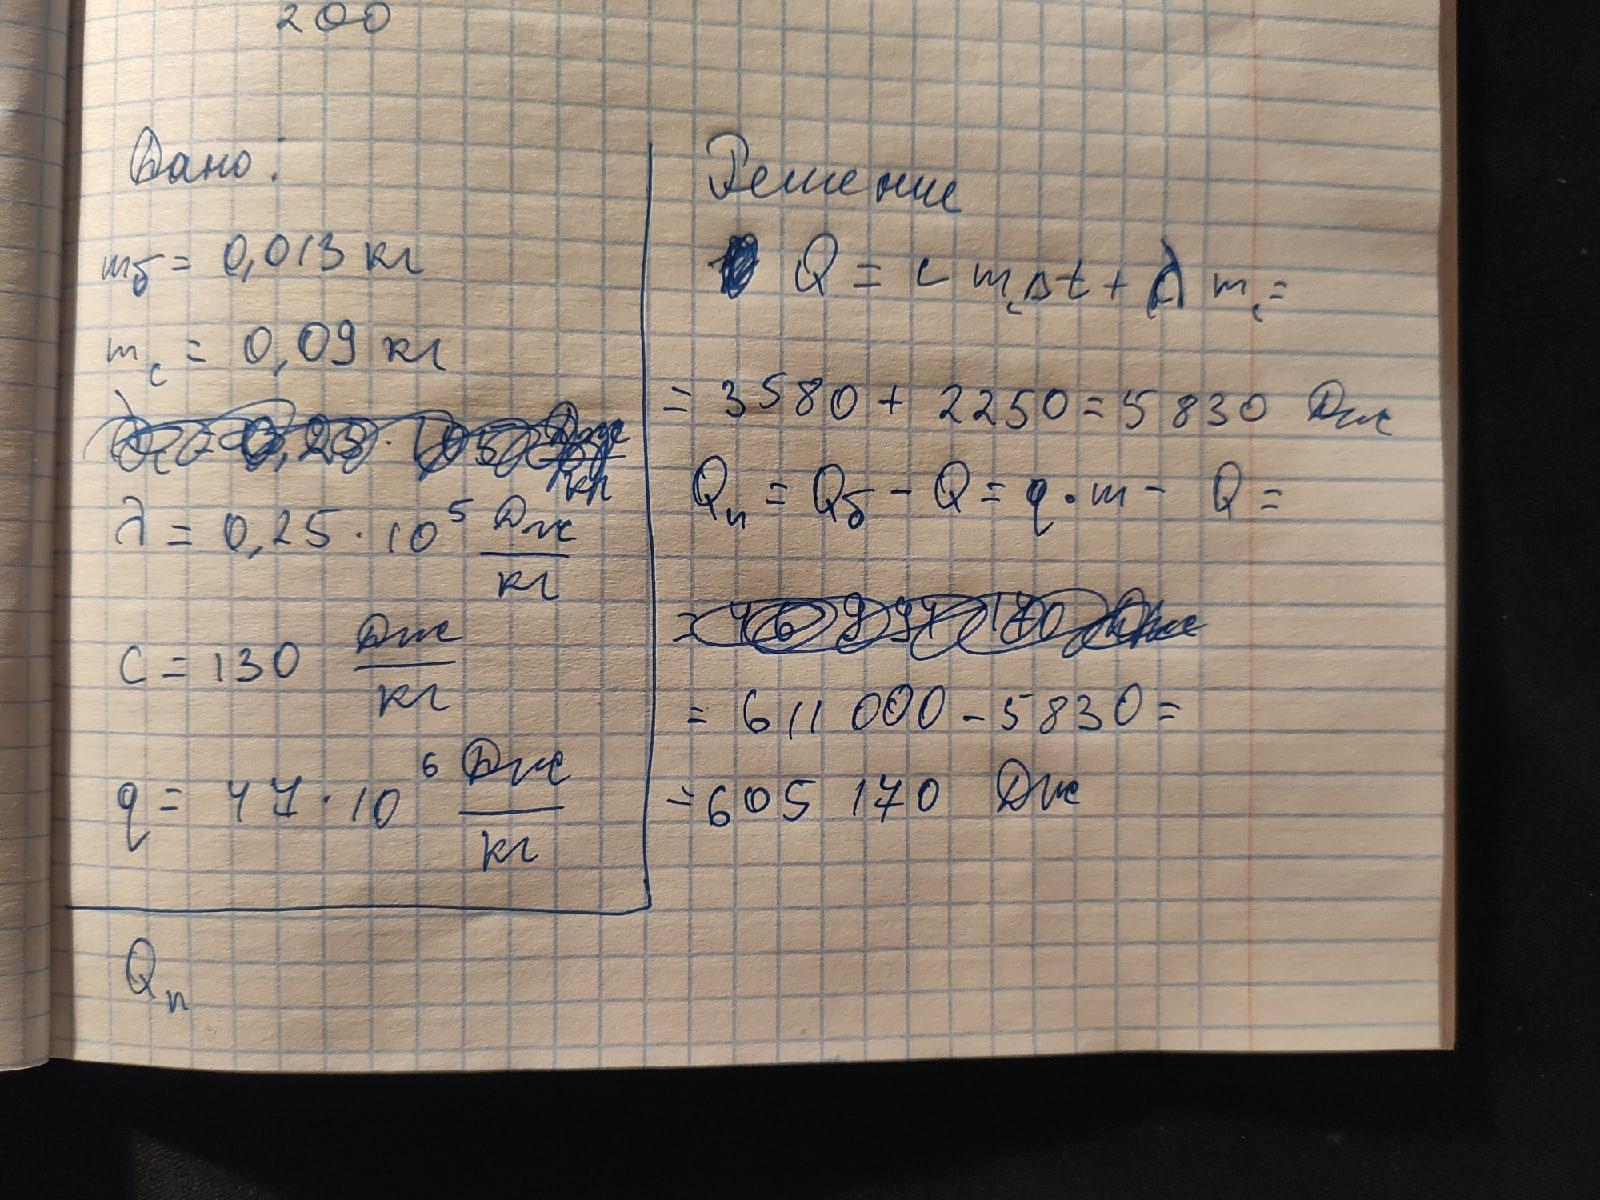 200
Дано:
mб = 0,013 кг
mс = 0,09 кг
λ = 0,25 · 10⁵ Дж/кг
C = 130 Дж/кг
q = 47 · 10⁶ Дж/кг
Qп
Решение
Q = c mс Δt + λ mс =
= 3580 + 2250 = 5830 Дж
Qп = Qб - Q = q · m - Q =
= 611 000 - 5830 =
= 605 170 Дж